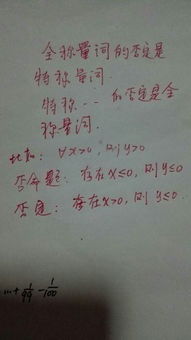 全称量词的否定是
特称量词.
特称··的否定是全
称量词.
比如: ∀x>0, 则y>0
否命题: 存在x≤0, 则y≤0
否定: 存在x>0, 则y≤0
…+1/99-1/100